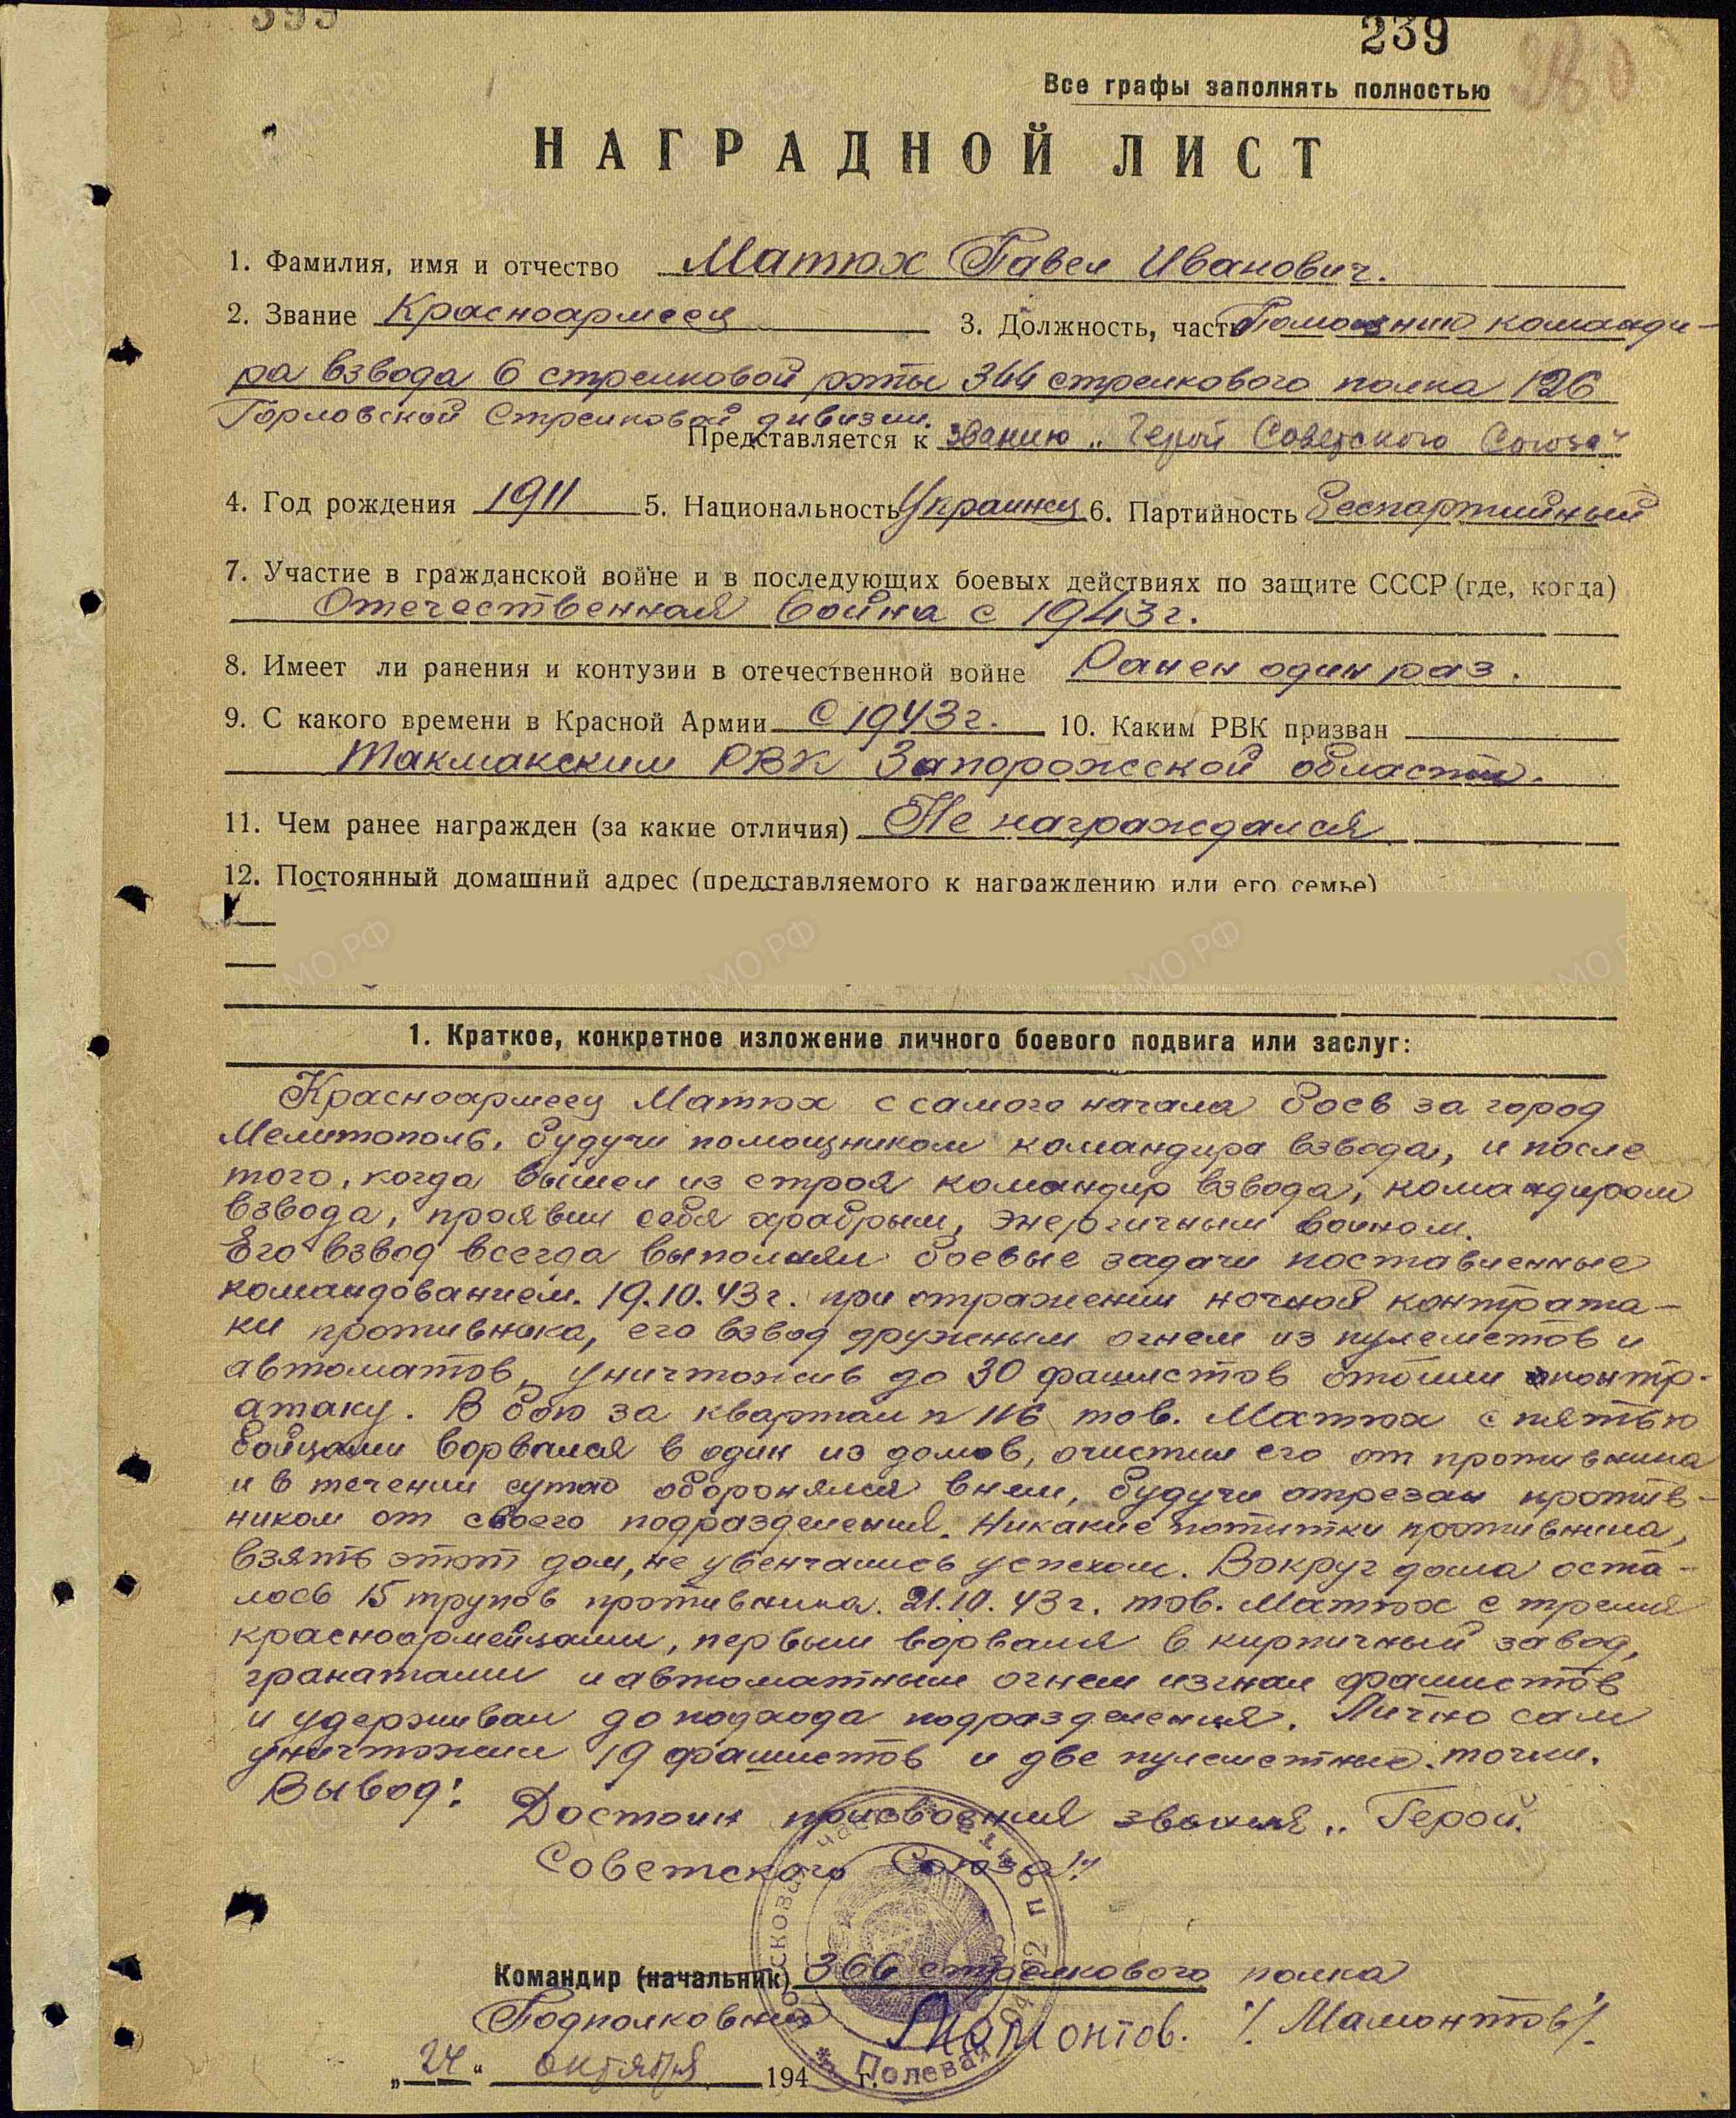 399
239
Все графы заполнять полностью
НАГРАДНОЙ ЛИСТ
1. Фамилия, имя и отчество Матюх Павел Иванович.
2. Звание Красноармеец 3. Должность, часть Помощник команди-
ра взвода 6 стрелковой роты 366 стрелкового полка 126
Горловской Стрелковой дивизии.
Представляется к званию „Герой Советского Союза"
4. Год рождения 1911 5. Национальность Украинец 6. Партийность беспартийный
7. Участие в гражданской войне и в последующих боевых действиях по защите СССР (где, когда)
Отечественная война с 1943г.
8. Имеет ли ранения и контузии в отечественной войне Ранен один раз.
9. С какого времени в Красной Армии С 1943г. 10. Каким РВК призван
Такмакским РВК Запорожской области.
11. Чем ранее награжден (за какие отличия) Не награждался
12. Постоянный домашний адрес (представляемого к награждению или его семье)
1. Краткое, конкретное изложение личного боевого подвига или заслуг:
Красноармеец Матюх с самого начала боев за город
Мелитополь, будучи помощником командира взвода, и после
того, когда вышел из строя командир взвода, командиром
взвода, проявил себя храбрым, энергичным воином.
Его взвод всегда выполнял боевые задачи поставленные
командованием. 19.10.43г. при отражении ночной контрата-
ки противника, его взвод дружным огнем из пулеметов и
автоматов, уничтожив до 30 фашистов отбили контр-
атаку. В бою за квартал n 116 тов. Матюх с пятью
бойцами ворвался в один из домов, очистил его от противника
и в течении суток оборонялся в нем, будучи отрезан против-
ником от своего подразделения. Никакие попытки противника,
взять этот дом, не увенчались успехом. Вокруг дома оста-
лось 15 трупов противника. 21.10.43г. тов. Матюх с тремя
красноармейцами, первым ворвался в кирпичный завод,
гранатами и автоматным огнем изгнал фашистов
и удерживал до подхода подразделения. Лично сам
уничтожил 19 фашистов и две пулеметные точки.
Вывод: Достоин присвоения звания „Герой
Советского Союза".
Командир (начальник) 366 стрелкового полка
Подполковник Мамонтов. /Мамонтов/.
„24" октября 194 г.
Полевая